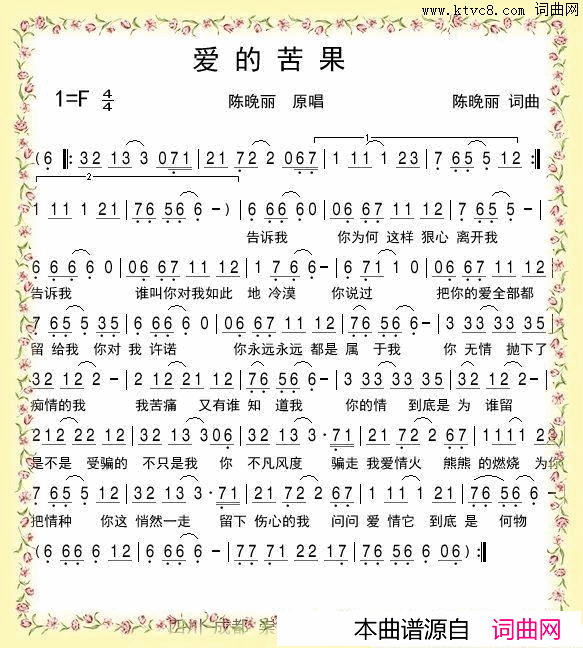 www.ktvc8.com 词曲网
爱的苦果
1=F 4/4 陈晚丽 原唱 陈晚丽 词曲
(6 ‖: 32 13 3 071 | 21 72 2 067 | 1 11 1 23 | 7 65 5 12 :‖
1 11 1 21 | 76 56 6 - ) | 6 66 60 | 06 67 11 12 | 7 65 5 - |
告诉我 你为何 这样 狠心 离开我
6 66 6 0 | 06 67 11 12 | 1 76 6 - | 6 71 1 0 | 06 67 11 12 |
告诉我 谁叫你对我如此 地 冷漠 你说过 把你的爱全部都
7 65 5 35 | 6 66 6 0 | 06 67 11 12 | 76 56 6 - | 3 33 33 35 |
留 给我 你对 我 许诺 你永远永远 都是 属 于我 你 无情 抛下了
32 12 2 - | 2 12 21 12 | 76 56 6 - | 3 33 33 35 | 32 12 2 - |
痴情的我 我苦痛 又有谁 知 道我 你的情 到底是 为 谁留
212 22 12 | 32 13 306 | 32 13 3· 71 | 21 72 2 67 | 111 1 23 |
是不是 受骗的 不只是我 你 不凡风度 骗走 我爱情火 熊熊 的燃烧 为你
7 65 5 12 | 32 13 3· 71 | 21 72 2 67 | 1 11 1 21 | 76 56 6 - |
把情种 你这 悄然一走 留下 伤心的我 问问 爱 情它 到底 是 何物
(6 66 6 12 | 6 66 6 - | 77 71 22 17 | 76 56 6 06) :‖
本曲谱源自 词曲网